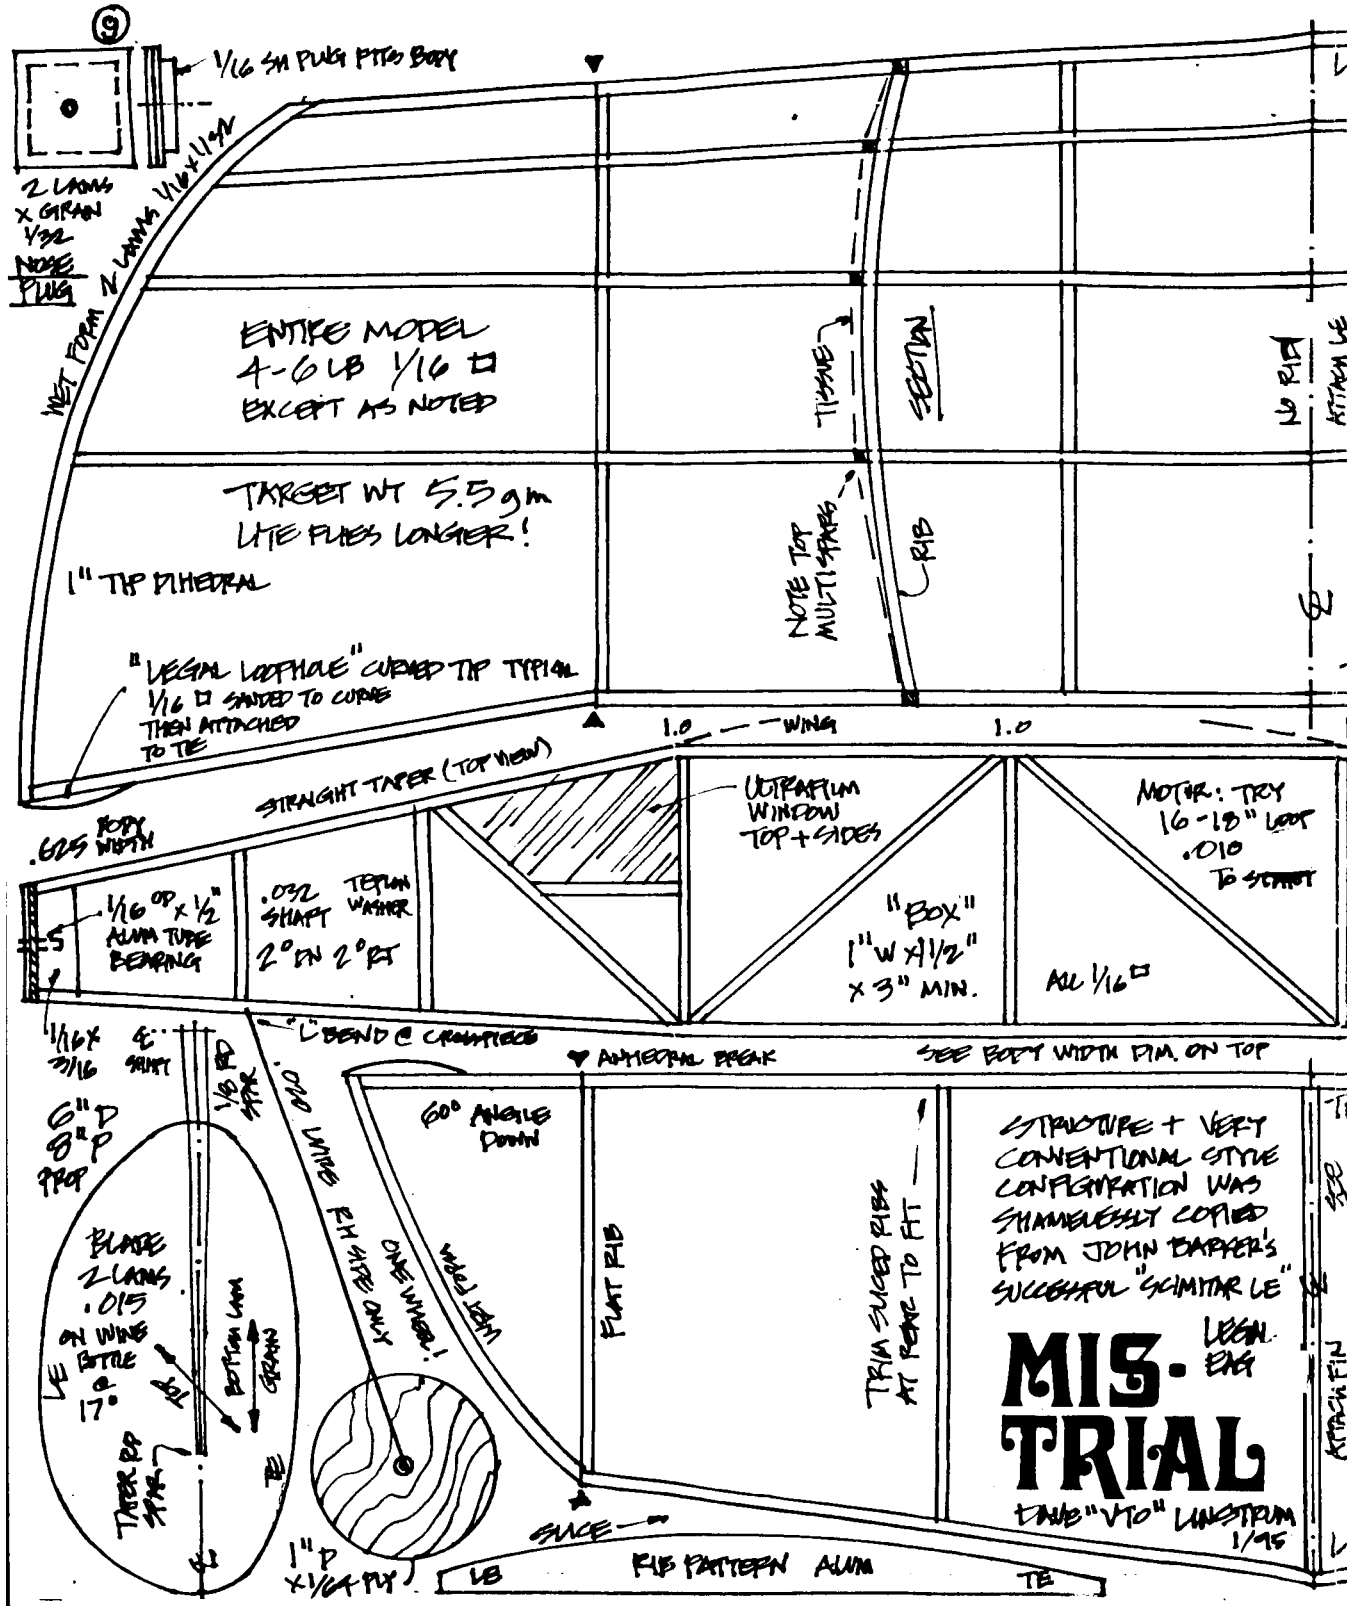 9
1/16 SH PLUG FITS BODY
2 LAMS
X GRAIN
1/32
NOSE
PLUG
WET FORM 2 LAMS 1/16 X 1/32
ENTIRE MODEL
4-6 LB 1/16 □
EXCEPT AS NOTED
TARGET WT 5.5 gm
LITE FLIES LONGER!
1" TIP DIHEDRAL
"LEGAL LOOPHOLE" CURVED TIP TYPICAL
1/16 □ SANDED TO CURVE
THEN ATTACHED
TO TE
TISSUE
SECTION
NOTE TOP
MULTISPARS
RIB
NO RIB
ATTACH LE
℄
1.0
WING
1.0
STRAIGHT TAPER (TOP VIEW)
.625 BODY
WIDTH
ULTRAFILM
WINDOW
TOP + SIDES
MOTOR: TRY
16-18" LOOP
.010
TO START
1/16 OD X 1/2"
ALUM TUBE
BEARING
.032
SHAFT
TEFLON
WASHER
2° DN 2° RT
"BOX"
1" W X 1 1/2"
X 3" MIN.
ALL 1/16 □
1/16 X
3/16
℄
SHAFT
1/8 RD
SPAR
"L" BEND @ CROSSPIECE
ANHEDRAL BREAK
SEE BODY WIDTH DIM. ON TOP
6" D
8" P
PROP
.020 WIRE RH SIDE ONLY
ONE WHEEL!
60° ANGLE
DOWN
WET FORM
FLAT RIB
TRIM SLICED RIBS
AT REAR TO FIT
STRUCTURE + VERY
CONVENTIONAL STYLE
CONFIGURATION WAS
SHAMELESSLY COPIED
FROM JOHN BARKER'S
SUCCESSFUL "SCIMITAR LE"
SEE
℄
ATTACH FIN
BLADE
2 LAMS
.015
ON WINE
BOTTLE
@
17°
LE
TOP
BOTTOM LAM
GRAIN
TE
TAPER RD
SPAR
℄
LEGAL
EAG
MIS-
TRIAL
DAVE "VTO" LINSTRUM
1/95
1" D
X 1/64 PLY
SLICE
LE
RIB PATTERN ALUM
TE